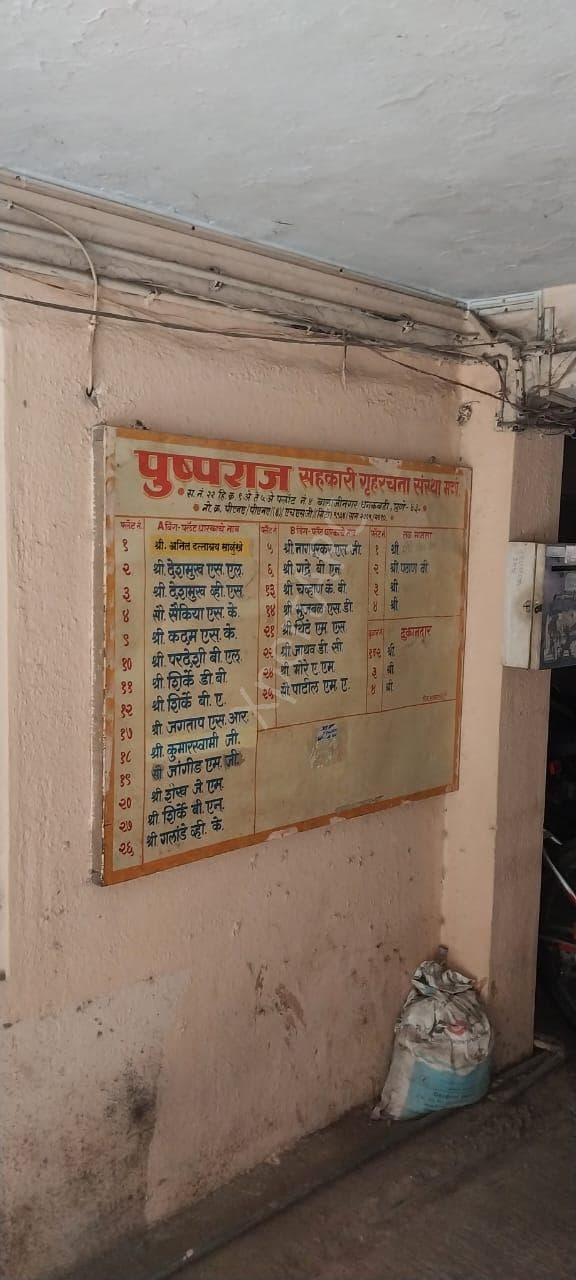 पुष्पराज सहकारी गृहरचता संस्था मर्या.
स. नं. २२ हि. क्र. ९ अ ते ५ अ प्लॉट नं. ४ बालाजीनगर धनकवडी, पुणे-४३.
फ्लॅट नं. A विंग-फ्लॅट धारकाचे नाव
१ श्री. अनिल दत्तात्रय साळुंखे
२ श्री देशमुख एस. एल.
३ श्री. देशमुख व्ही. एस
४ सौ. सैकिया एस. के.
९ श्री. कदम एस. के.
१० श्री. परदेशी बी. एल.
११ श्री. शिर्के डी. बी
१२ श्री. शिर्के बी. ए.
१७ श्री. जगताप एस. आर.
१८ श्री कुमारस्वामी जी.
१९ सौ जांगीड एम. जी.
२० श्री शेख जे. एम.
२७ श्री शिर्के बी. एन.
२६ श्री गलांडे व्ही. के.
फ्लॅट नं. B विंग-फ्लॅट धारकाचे नाव
५ श्री नागपूरकर एस. जी.
६ श्री. गद्रे बी. एन.
१३ श्री चव्हाण के. बी.
१४ श्री भुजबळ एस. डी.
२१ श्री शिंदे एम. एस.
२२ श्री जाधव डी. सी
श्री मोरे ए. एम.
सौ पाटील एम. ए.
फ्लॅट नं. तळ मजला
१ श्री
२ श्री पठाण बी
३ श्री
४ श्री
दुकानदार
१ श्री
३ श्री
४ श्री